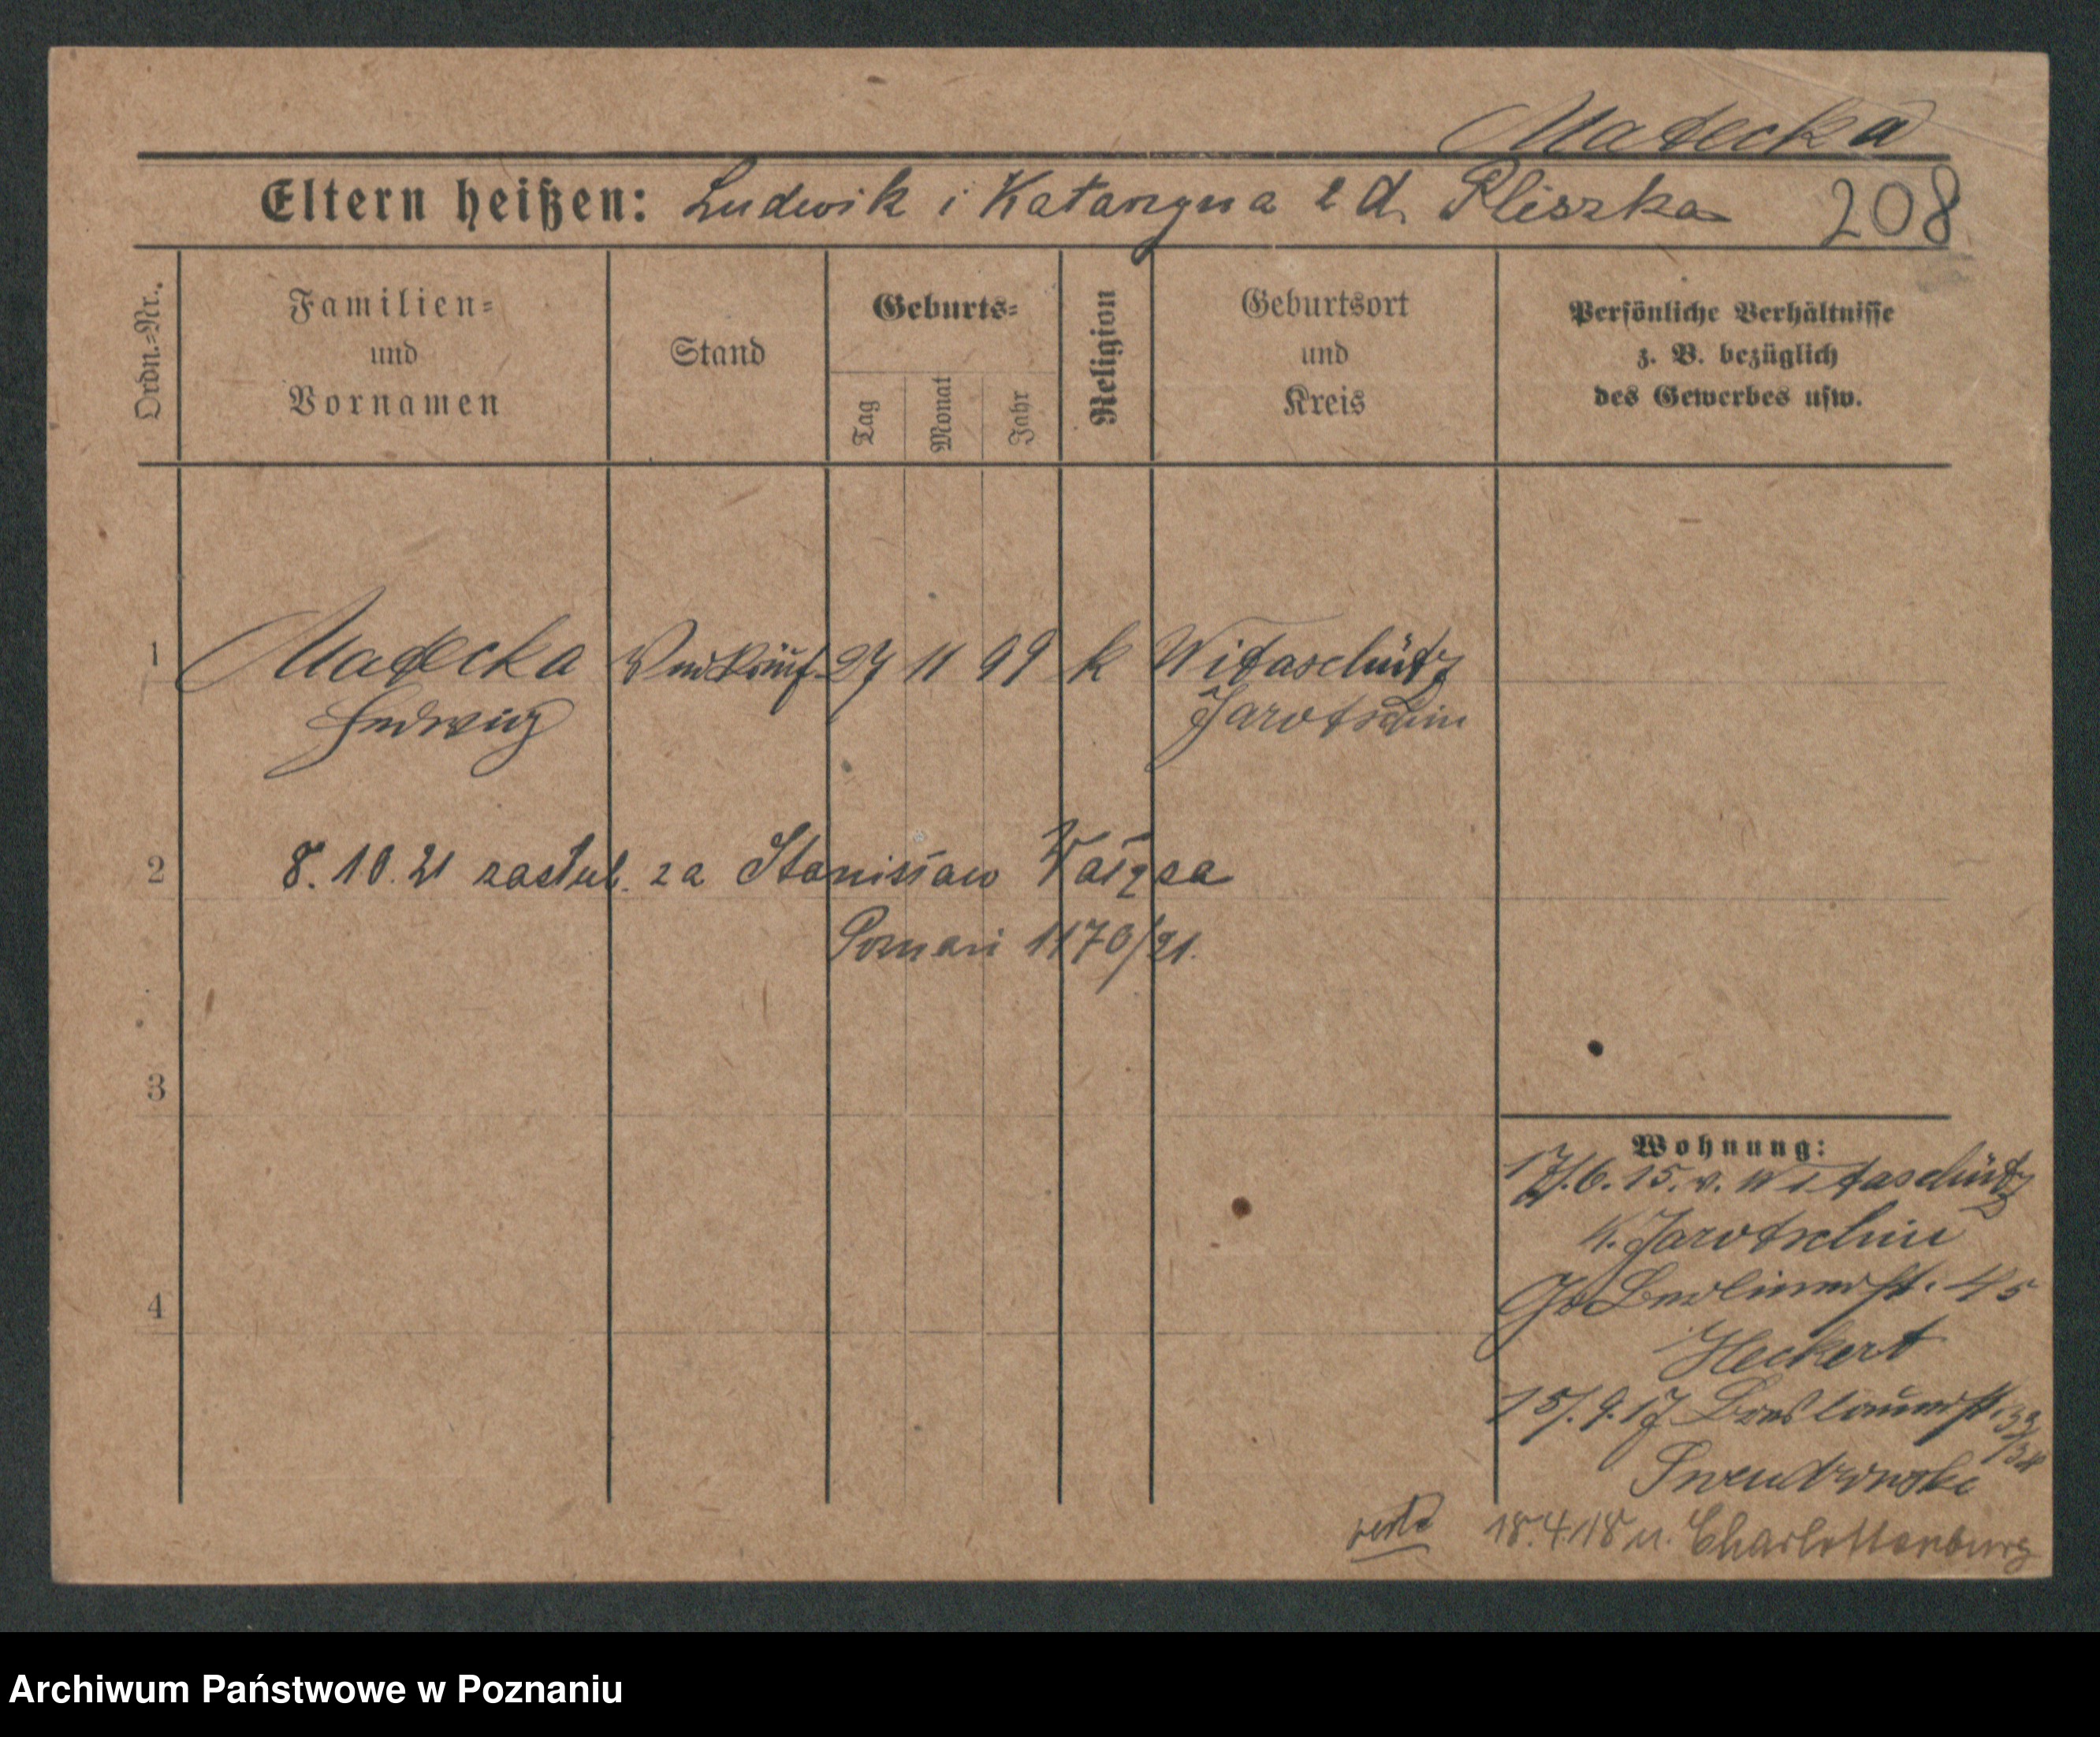 Matecka
Eltern heißen: Ludwik i Katarzyna z d. Pliszka 208
Ordn.-Nr. Familien- und Vornamen Stand Geburts- Tag Monat Jahr Religion Geburtsort und Kreis Persönliche Verhältnisse z. B. bezüglich des Gewerbes usw.
1 Matecka Verkäuf. 27 11 99 k Witaschütz
Hedwig Jarotschin
2 8.10.21 zaślub. za Stanisław
Poznań 1170/21.
3
Wohnung:
17/.6.15. v. Witaschütz
K. Jarotschin
4 Gr Berlinerst. 45
Heckert
15/.9.17 Breslauerst.
18.4.18 n. Charlottenburg
Archiwum Państwowe w Poznaniu